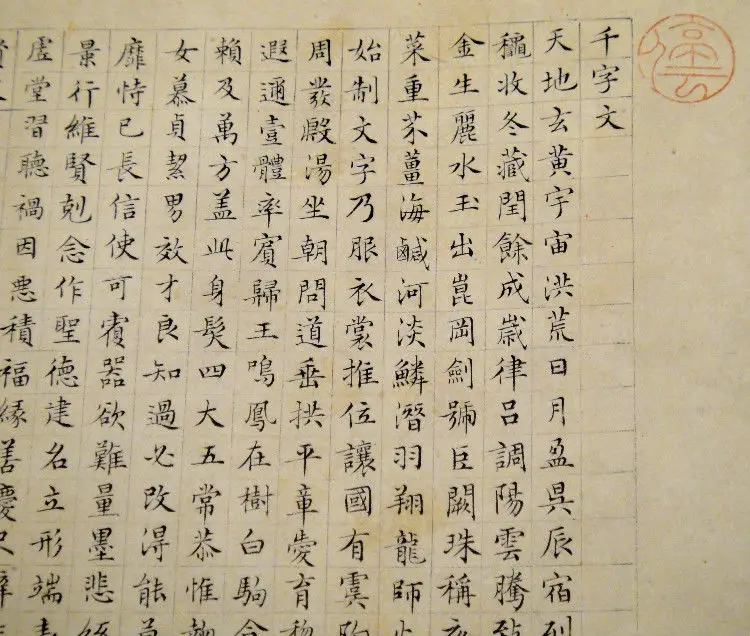 停雲
千字文
天地玄黃宇宙洪荒日月盈昃辰宿列
龝收冬藏閏餘成嵗律呂調陽雲騰致
金生麗水玉出崑岡劍號巨闕珠稱夜
菜重芥薑海鹹河淡鱗潛羽翔龍師火
始制文字乃服衣裳推位讓國有虞陶
周發殷湯坐朝問道垂拱平章愛育
遐邇壹體率賓歸王鳴鳳在樹白駒食
賴及萬方盖此身髮四大五常恭惟鞠
女慕貞絜男效才良知過必改得能莫
靡恃己長信使可覆器欲難量墨悲絲
景行維賢剋念作聖德建名立形端表
虛堂習聽禍因悪積福緣善慶尺璧